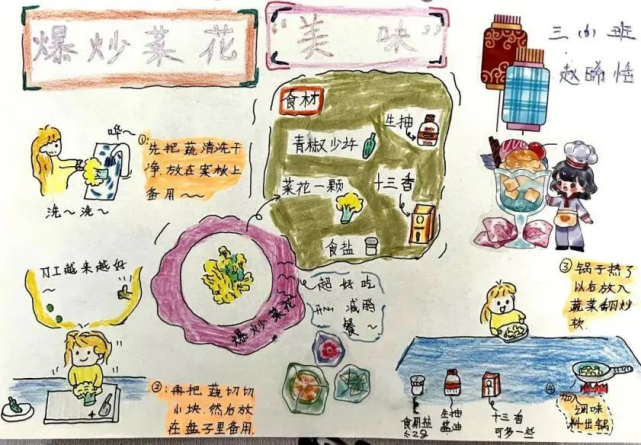 爆炒菜花
“美味”
三小班
赵晞恬
食材
生抽
青椒少许
菜花一颗
十三香
食盐
哗~
洗~洗~
①先把蔬清洗干
净,放在案板上
备用~~
刀工越来越好
~
爆炒菜花
超好吃
减脂
餐~
②:再把蔬切切
小块.然后放
在盘子里备用.
③锅子热了
以后放入
蔬菜翻炒
④加入
调味
料出锅
食用盐
生抽
酱油
十三香
可多一些